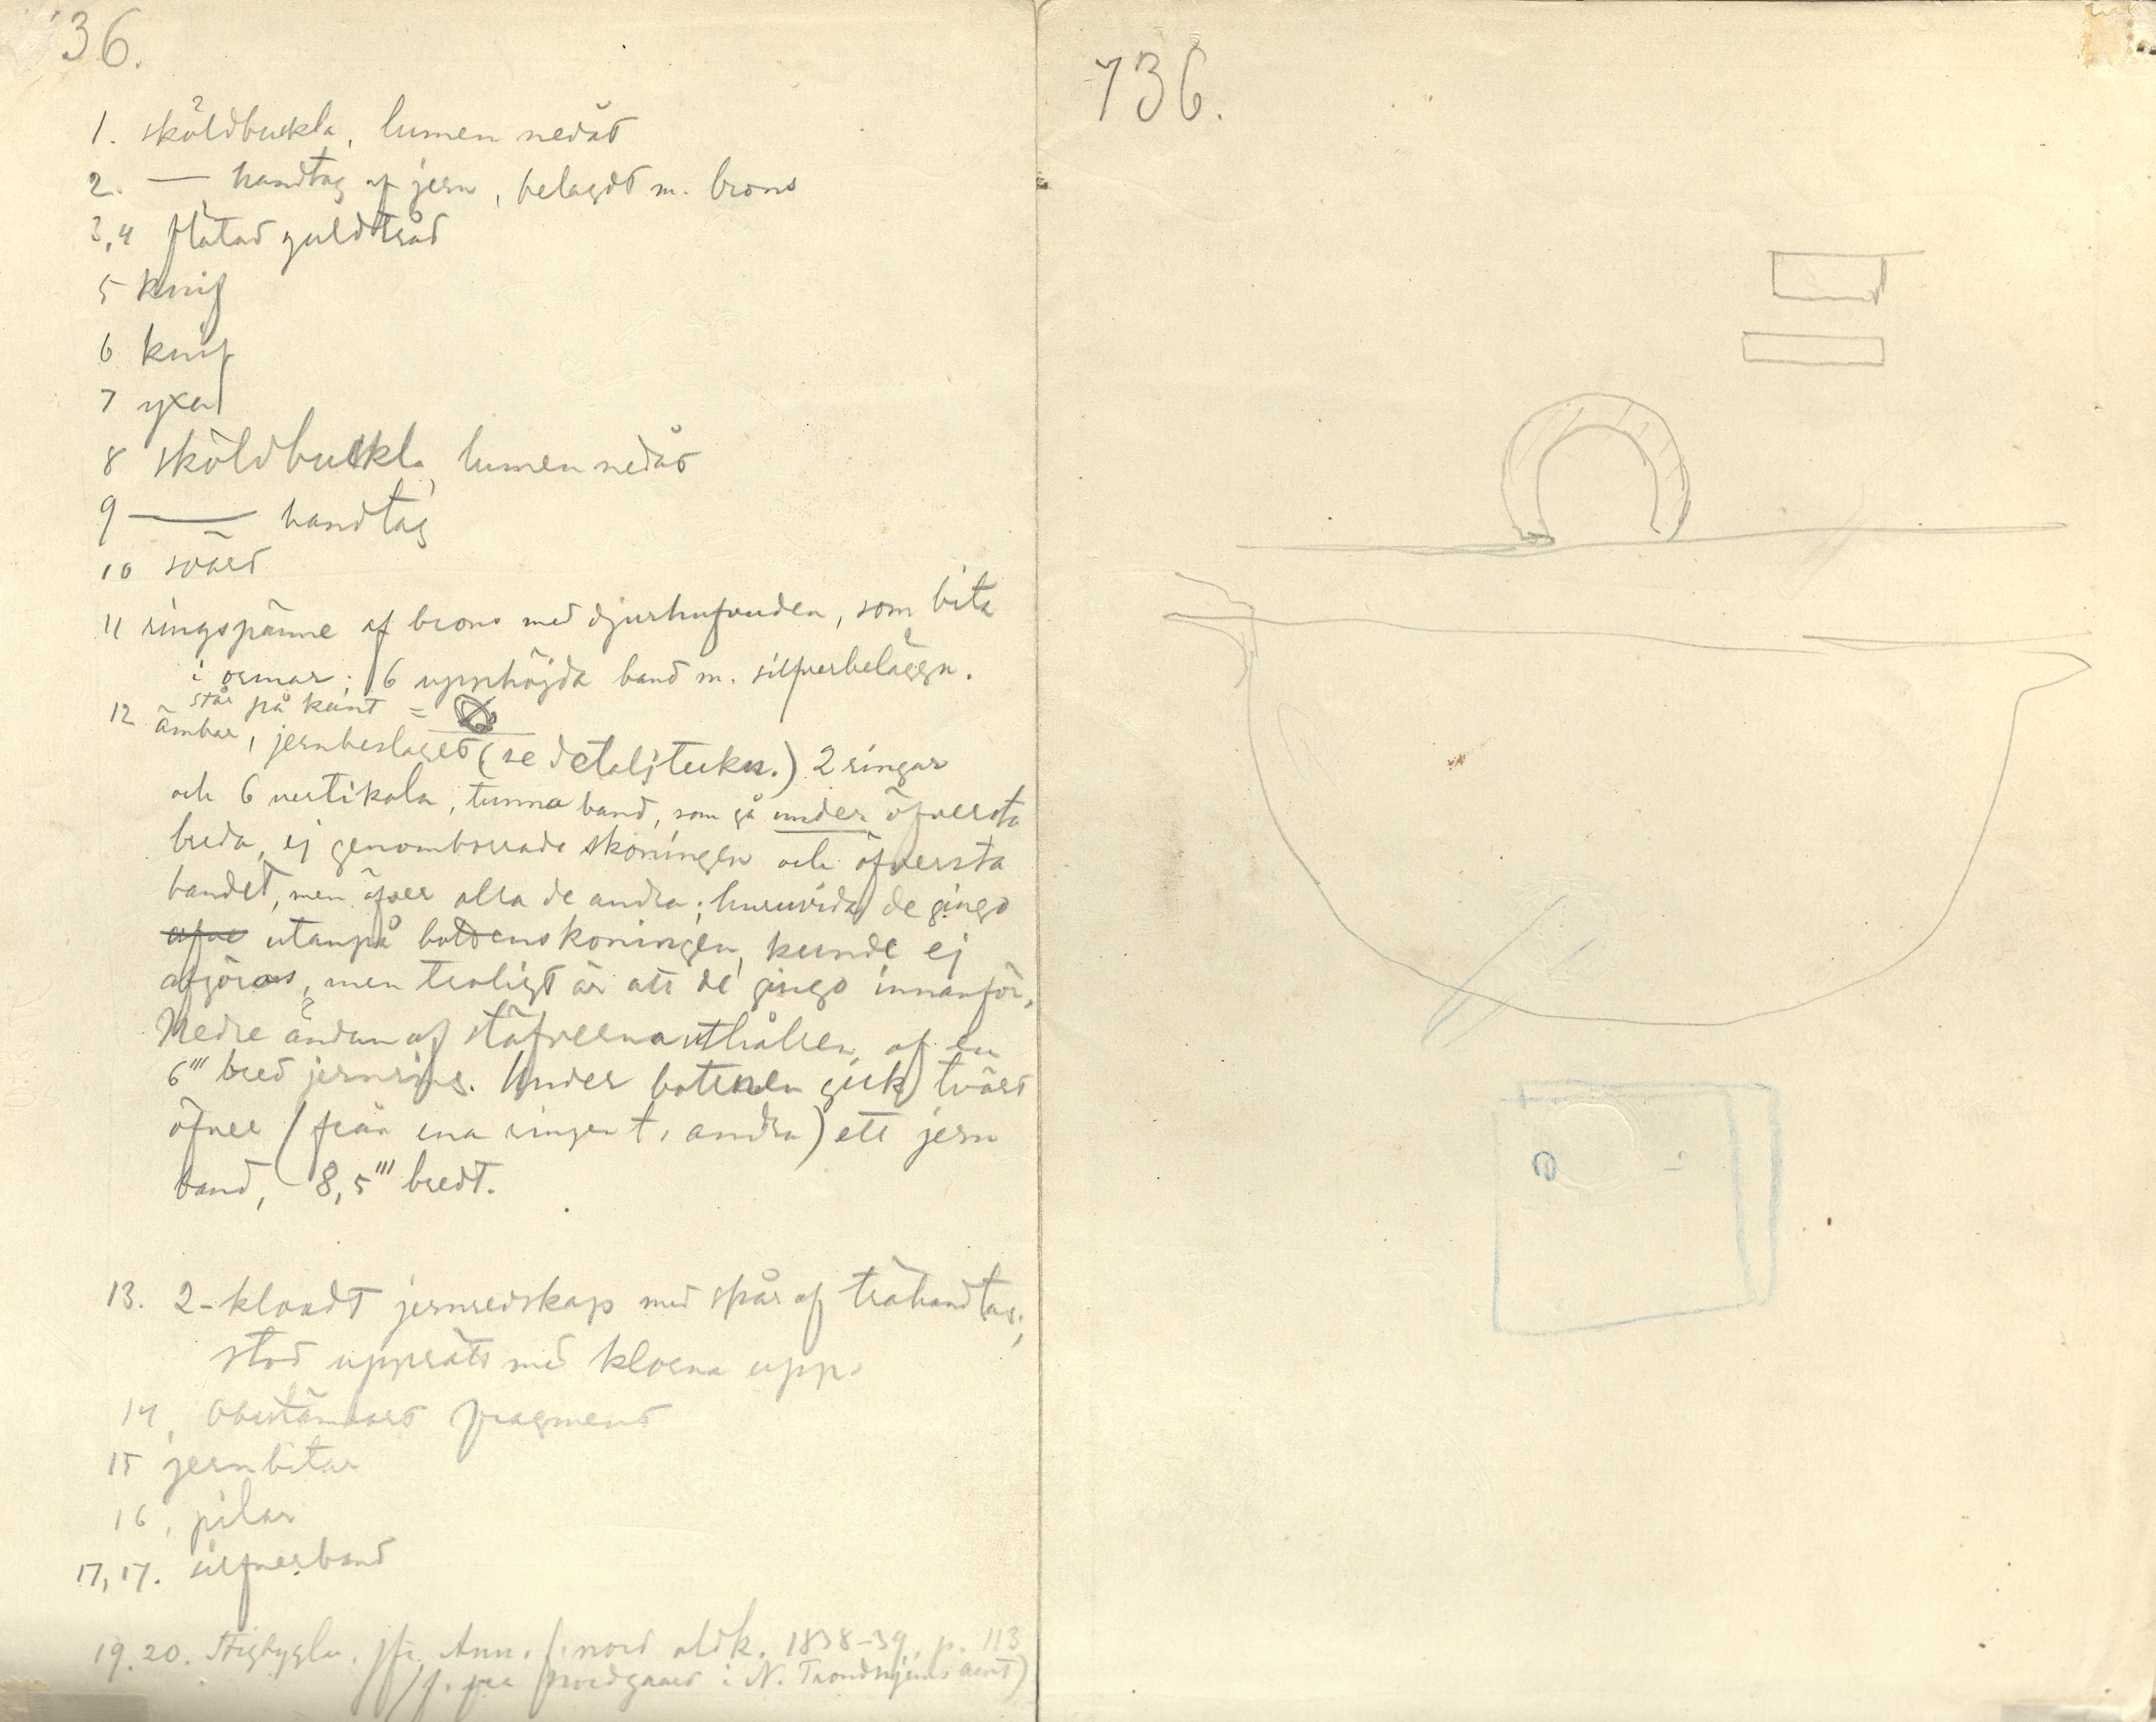 736.
1. sköldbuckla, lumen nedåt
2. — handtag af jern, belagdt m. brons
3,4 flätad guldtråd
5 knif
6 knif
7 yxa
8 sköldbuckla, lumen nedåt
9 — handtag
10 svärd
11 ringspänne af brons med djurhufvuden, som bita
i ormar; 6 upphöjda band m. silfverbeläggn.
står på kant =
12 ämbar, jernbeslaget (se detaljteckn.) 2 ringar
och 6 vertikala, tunna band, som gå under öfversta
breda, ej genombrrade skoningen och öfversta
bandet, men öfver alla de andra; huruvida de gingo
utanpå bottenskoningen, kunde ej
afgöras, men troligt är att de gingo innanför.
Nedre ändan af stäfverna uthålsen af en
6''' bred jernring. Under bottnen gick tvärt
öfver (från ena ringen t. andra) ett jern
band, 8,5''' bredt.
13. 2-kloadt jernredskap med spår af trähandtag;
stod upprätt med klorna upp.
14, Obestämbart fragment
15 jernbitar
16, pilar
17, 17. silfverband
19.20. Stigbyglar, jfr. Ann. f. nord oldk. 1838-39, p. 113
(f. fra i N. Trondhjems amt)
736.